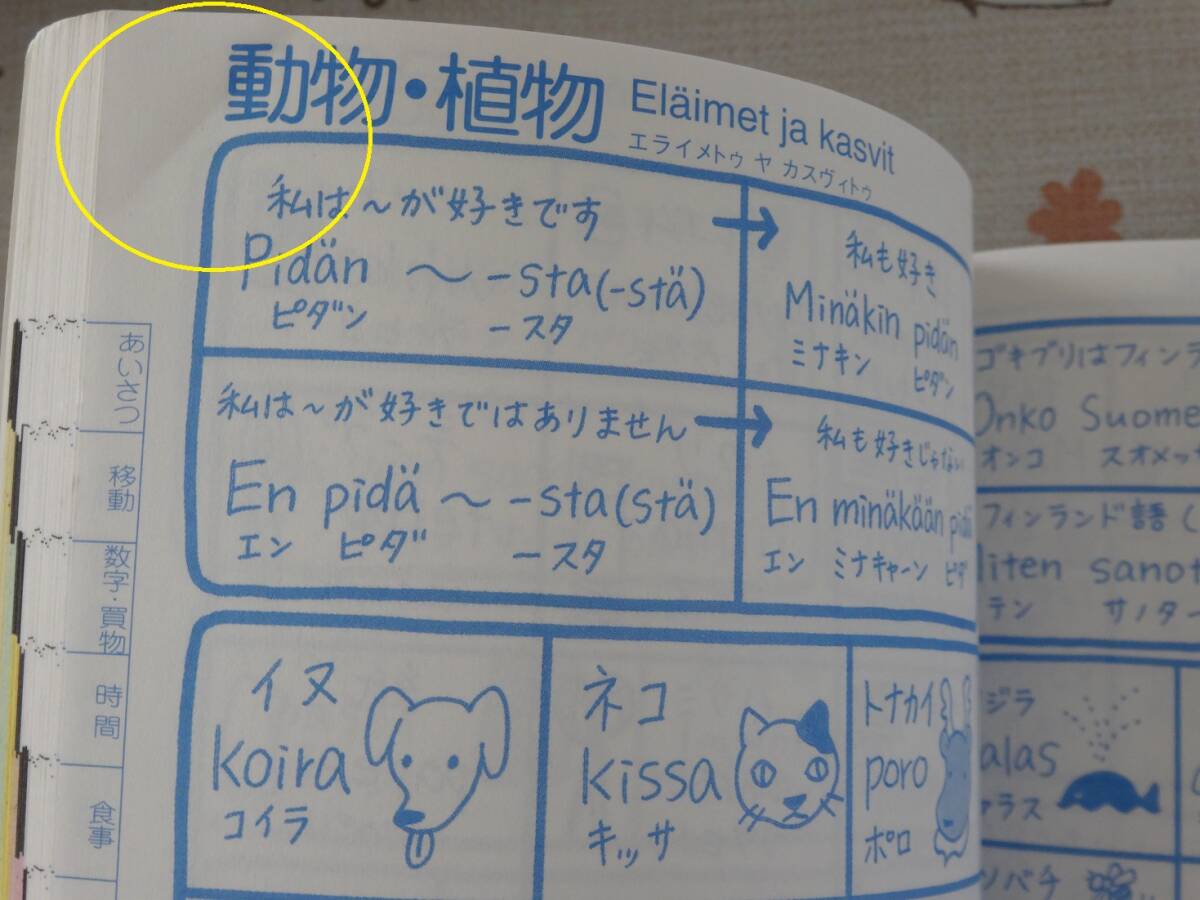 動物・植物 Eläimet ja kasvit
エライメトゥ ヤ カスヴィトゥ
私は～が好きです →
Pidän ～ -sta(-stä)
ピダン -スタ
私も好き
Minäkin pidän
ミナキン ピダン
私は～が好きではありません →
En pidä ～ -sta(stä)
エン ピダ -スタ
私も好きじゃない
En minäkään pidä
エン ミナキャーン ピダ
イヌ
koira
コイラ
ネコ
kissa
キッサ
トナカイ
poro
ポロ
あいさつ
移動
数字・買物
時間
食事
ゴキブリはフィンラ
Onko Suome
オンコ スオメッ
フィンランド語（
iten sanot
テン サノター
ジラ
alas
ラス
ソバチ